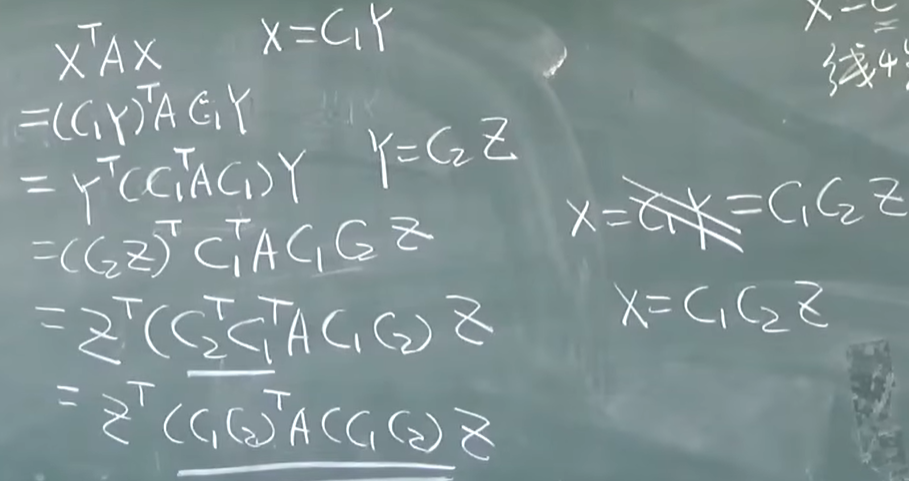 XᵀAX
X=C₁Y
=(C₁Y)ᵀAC₁Y
=Yᵀ(C₁ᵀAC₁)Y
Y=C₂Z
=(C₂Z)ᵀC₁ᵀAC₁C₂Z
=Zᵀ(C₂ᵀC₁ᵀAC₁C₂)Z
=Zᵀ(C₁C₂)ᵀA(C₁C₂)Z
X=C₁Y=C₁C₂Z
X=C₁C₂Z
X=C
线